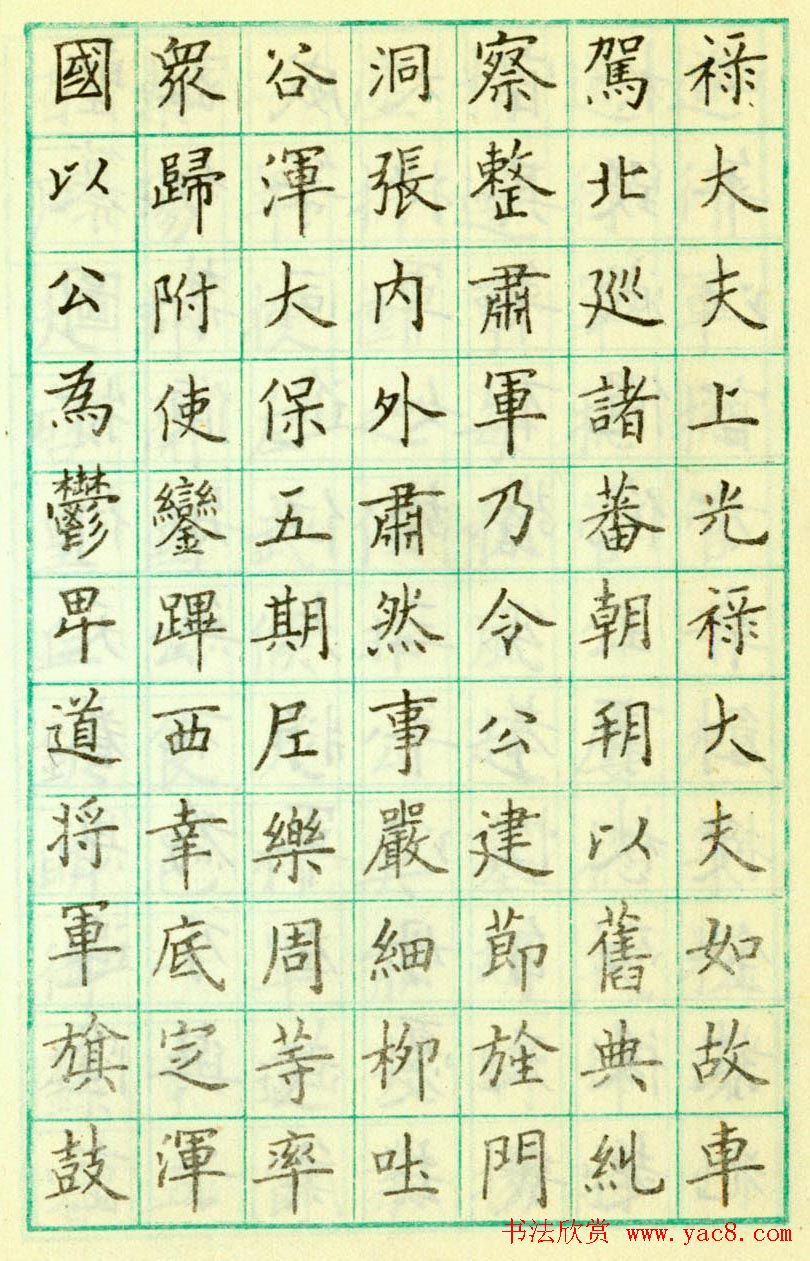 禄大夫上光禄大夫如故車
駕北巡諸蕃朝朔以舊典糺
察整肅軍乃令公建節旌門
洞張内外肅然事嚴細柳吐
谷渾大保五期尼樂周等率
衆歸附使鑾蹕西幸底定渾
國以公為鬱卑道将軍旗鼓
书法欣赏 www.yac8.com